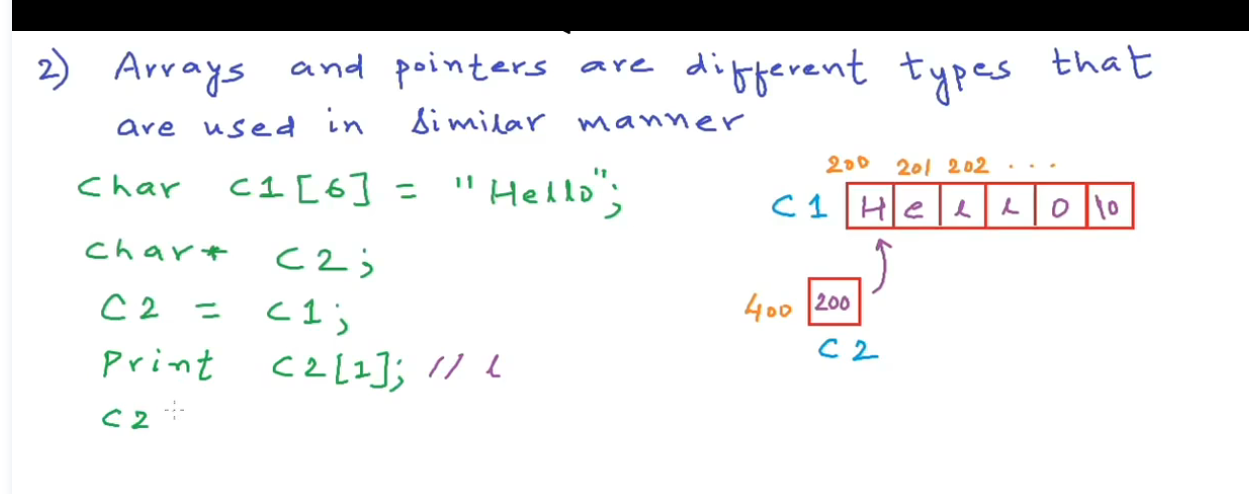 2) Arrays and pointers are different types that
are used in similar manner
Char C1[6] = "Hello";
Char* C2;
C2 = C1;
Print C2[1]; // l
C2
200 201 202 ...
C1 H e l l o \0
400 200
C2